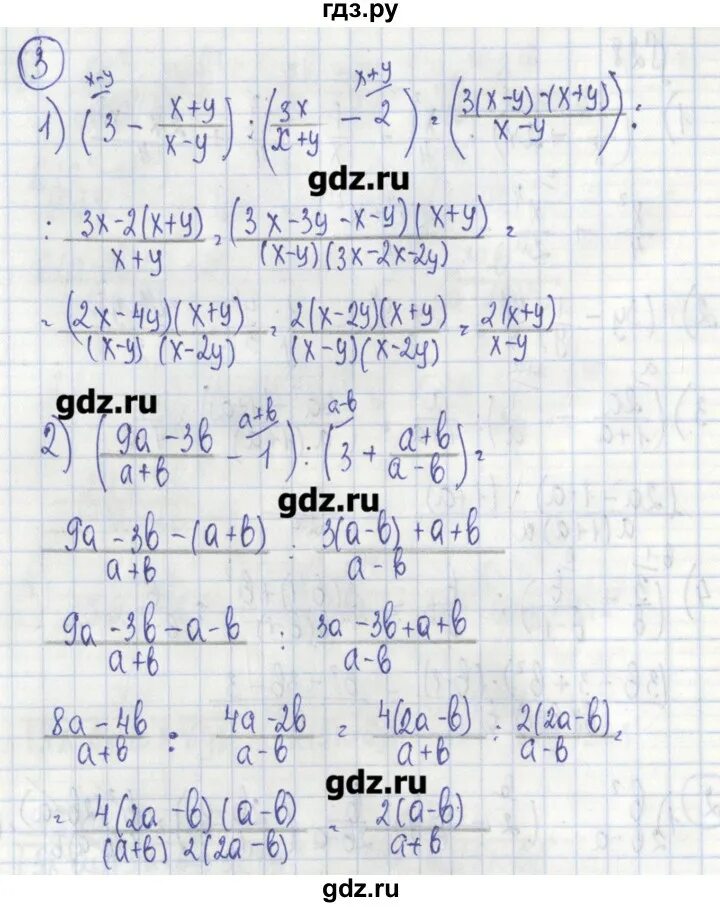 гдз.ру
3
x-y x+y
1) (3 - x+y/x-y) : (3x/x+y - 2) = (3(x-y)-(x+y)/x-y) :
gdz.ru
: 3x-2(x+y)/x+y = (3x-3y-x-y)(x+y)/(x-y)(3x-2x-2y) =
= (2x-4y)(x+y)/(x-y)(x-2y) = 2(x-2y)(x+y)/(x-y)(x-2y) = 2(x+y)/x-y
gdz.ru
a+b a-b
2) (9a-3b/a+b - 1) : (3 + a+b/a-b) =
gdz.ru
9a-3b-(a+b)/a+b : 3(a-b)+a+b/a-b
9a-3b-a-b/a+b : 3a-3b+a+b/a-b
8a-4b/a+b : 4a-2b/a-b = 4(2a-b)/a+b : 2(2a-b)/a-b =
gdz.ru
= 4(2a-b)(a-b)/(a+b)2(2a-b) = 2(a-b)/a+b
gdz.ru